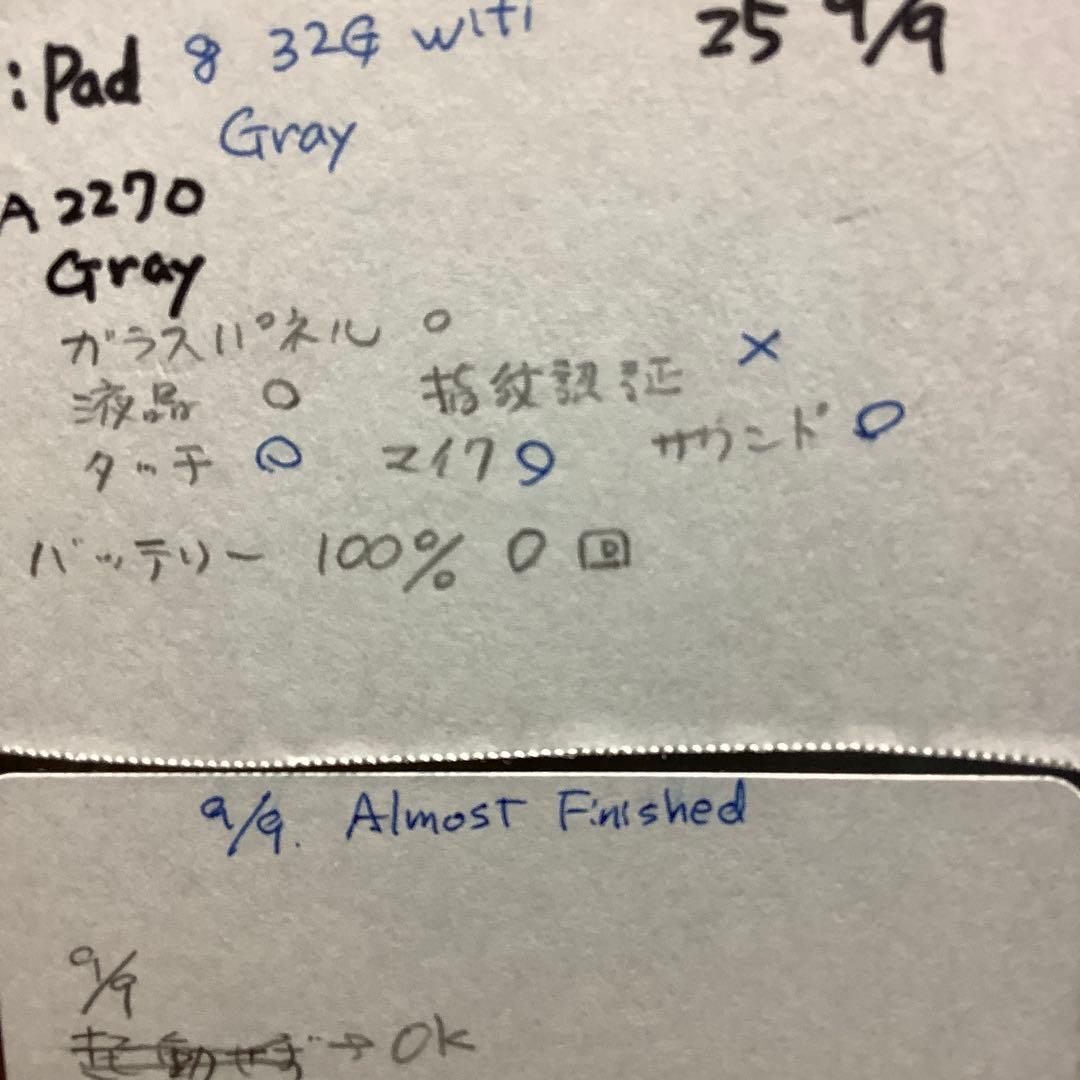 iPad 8 32G wifi 25 9/9
Gray
A2270
Gray
ガラスパネル ○
液晶 ○ 指紋認証 ×
タッチ ○ マイク ○ サウンド ○
バッテリー 100% 0回
9/9. Almost Finished
9/9
起動せず → OK